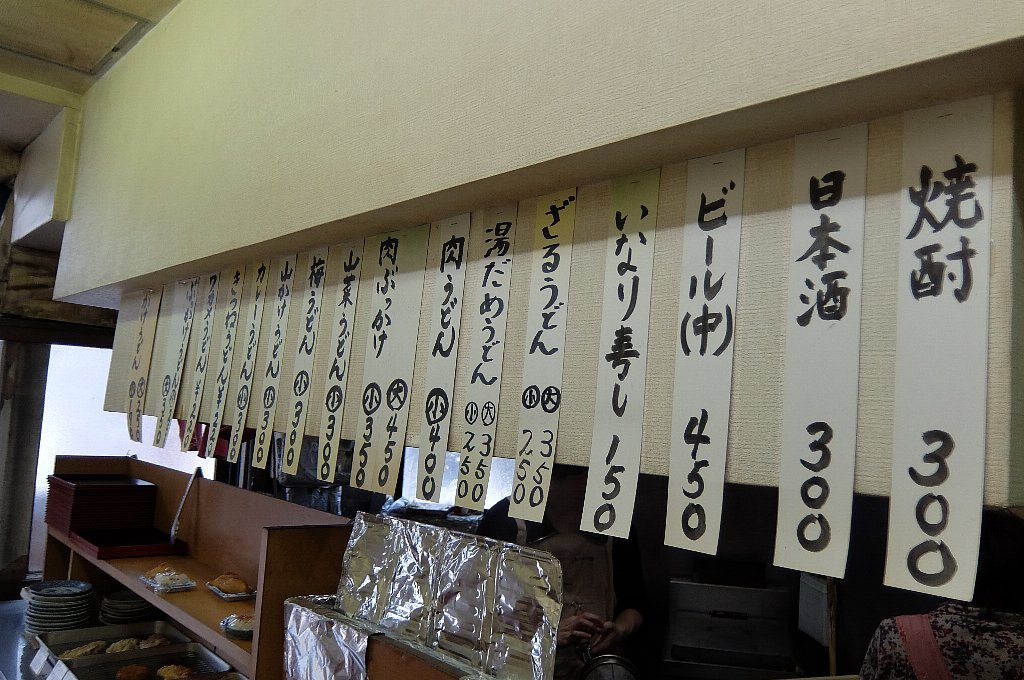 焼酎 300
日本酒 300
ビール(中) 450
いなり寿し 150
ざるうどん 大 350
小 250
湯だめうどん 大 350
小 250
肉うどん 小 400
肉ぶっかけ 大 450
小 350
山菜うどん 小 300
梅うどん 小 300
山かけうどん 小 300
カレーうどん 小 300
きつねうどん 小
ワカメうどん
うどん